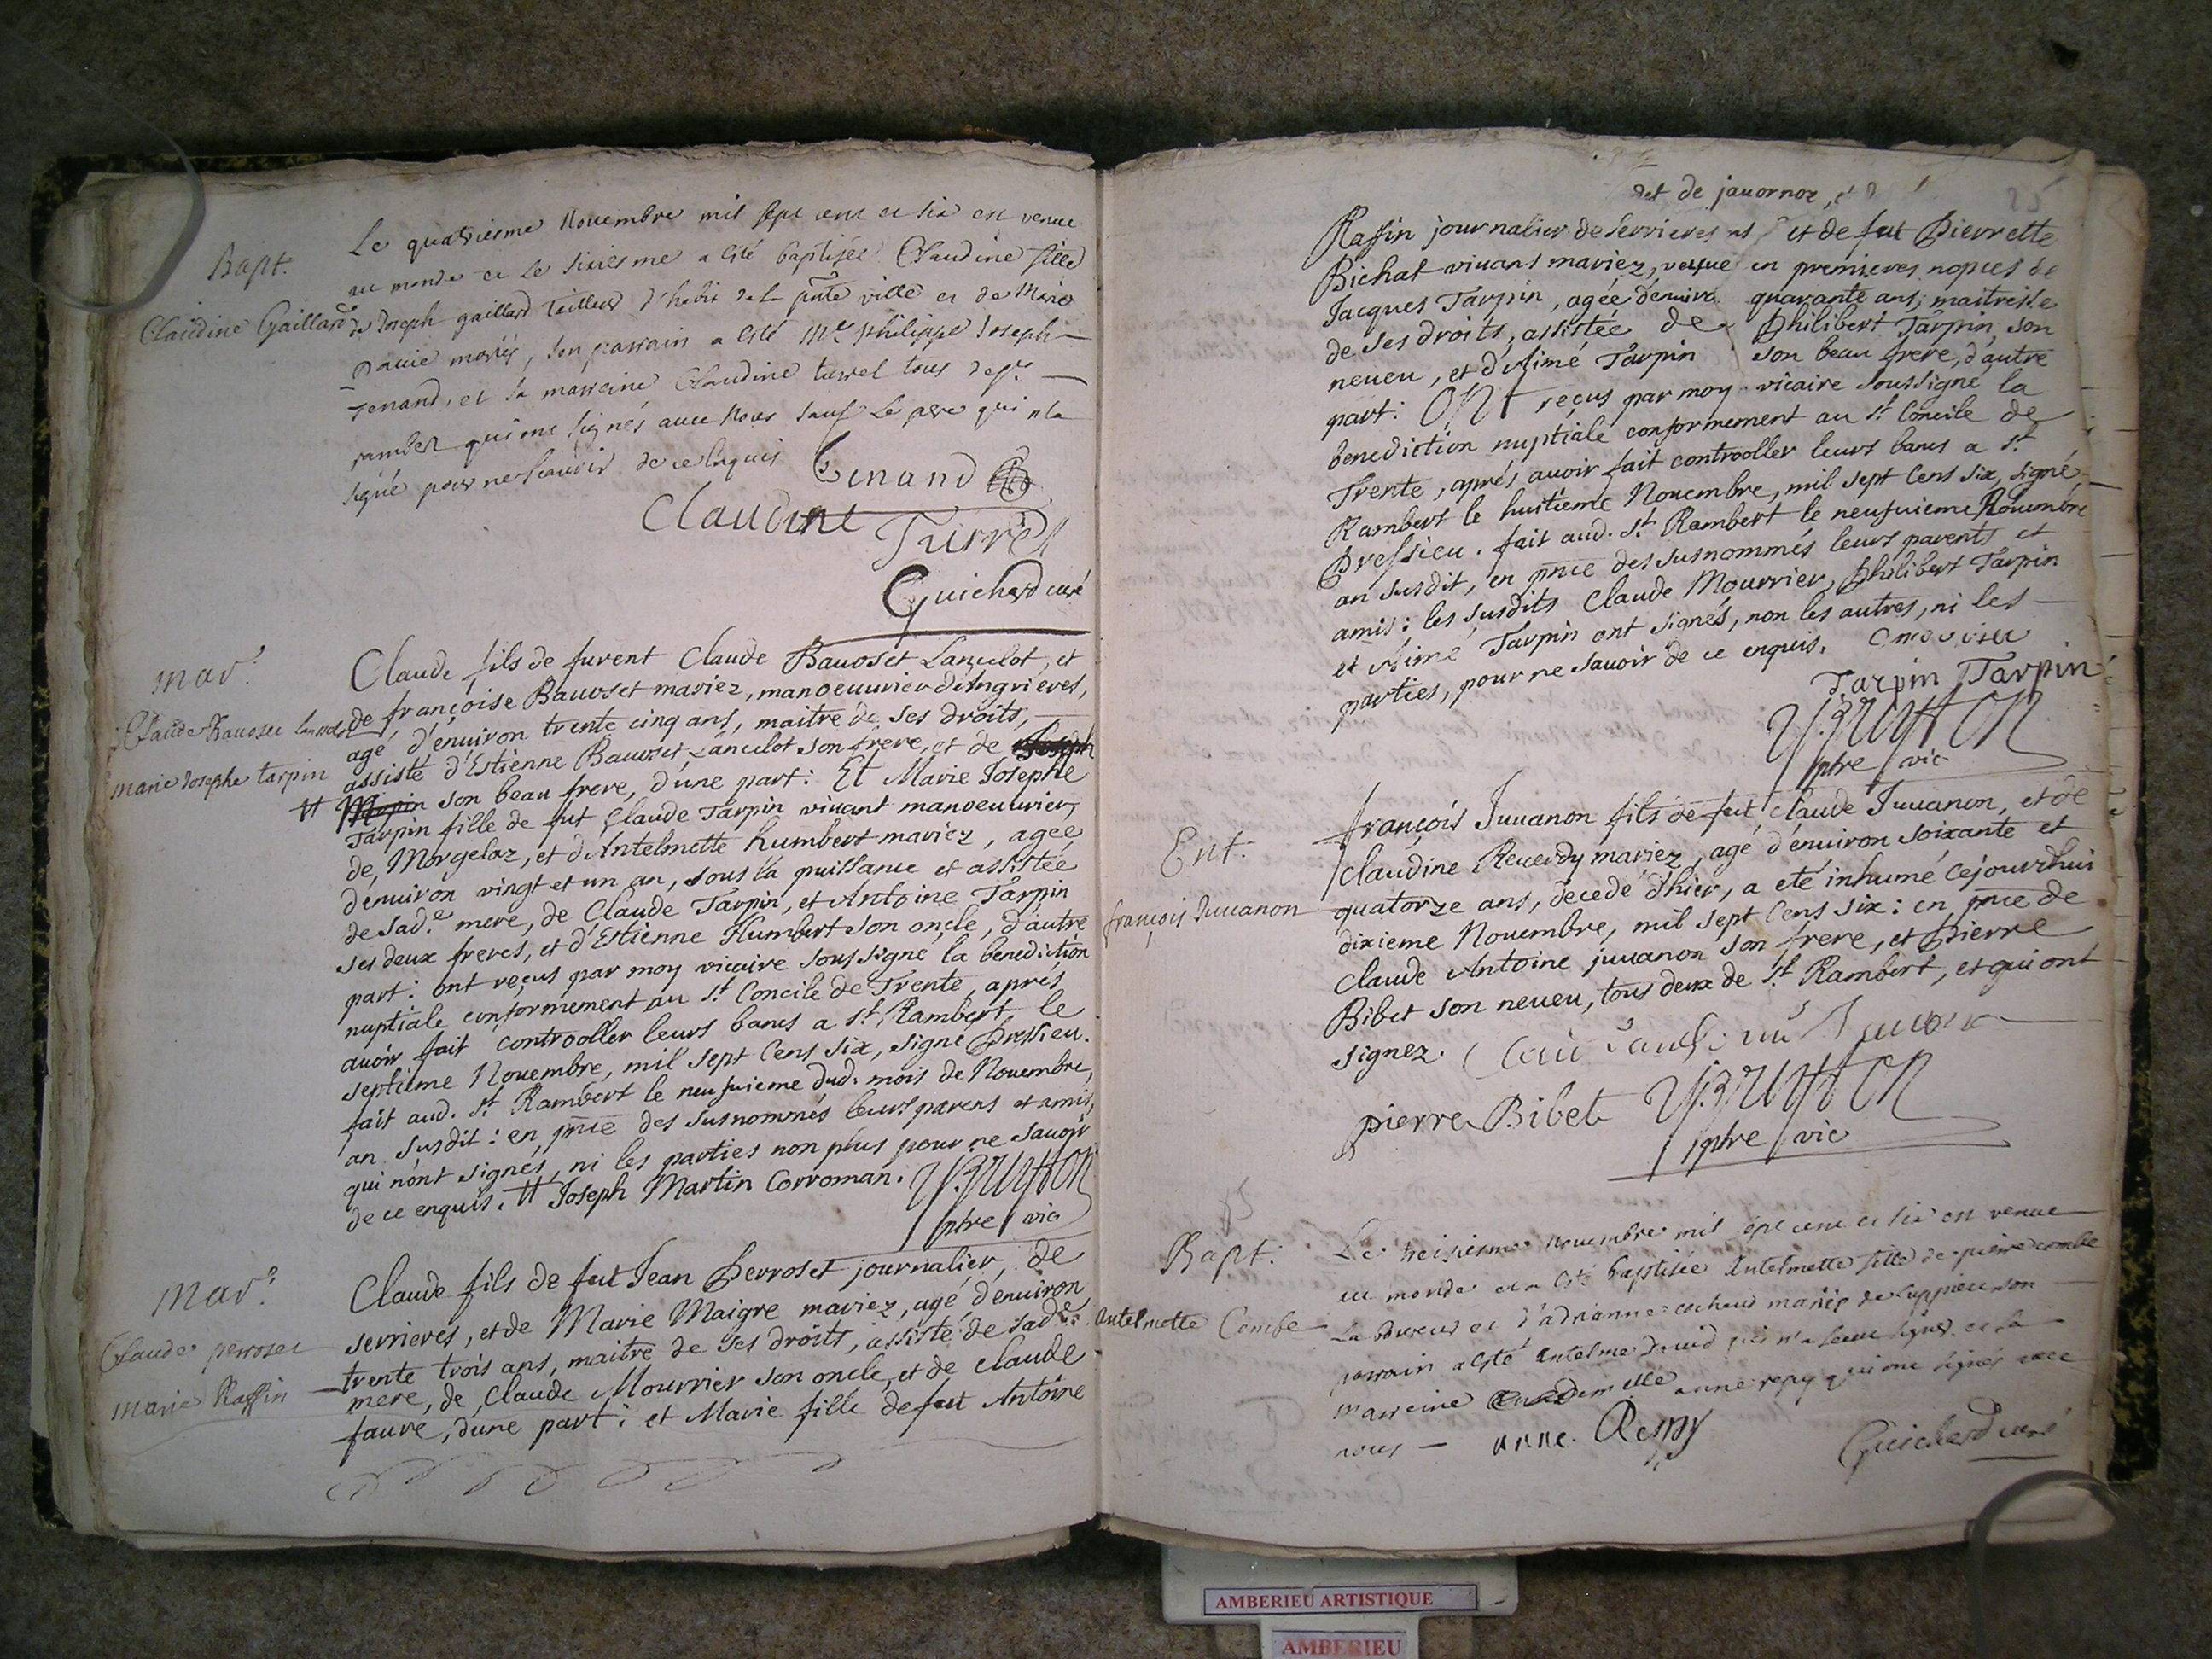 Bapt.
Claudine Gaillard
Le quatriesme Nouembre mil sept cens et six est venue
au monde et le sixiesme a esté baptisée Claudine fille
de Joseph gaillard tailleur d'habit de la pnte ville et de Marie
mariés, son parrain a esté Mr philippe Joseph
Tenand, et sa marreine Claudine turrel tous de st
rambert qui ont signés auec Nous sauf le pere qui n'a
signé pour ne scauoir de ce enquis
Tenand
Claudine Turrel
Guichard curé
mar.
Claude Bauoset Lancelot
marie Josephe tarpin
Claude fils de furent Claude Bauoset Lancelot, et
de françoise Bauoset mariez, manoeuurier d'Angrieres,
agé d'enuiron trente cinq ans, maitre de ses droits,
assisté d'Estienne Bauoset Lancelot son frere, et de Joseph
# Mapin son beau frere, d'une part: Et Marie Josephe
Tarpin fille de fut Claude Tarpin viuant manoeuurier,
de Morgelaz, et d'Antelmette humbert mariez, agée
d'enuiron vingt et un an, sous la puissance et assistée
de sad.e mere, de Claude Tarpin, et Antoine Tarpin
ses deux freres, et d'Estienne Humbert son oncle, d'autre
part: ont reçus par moy vicaire soussigné la benediction
nuptiale conformement au st Concile de Trente, aprés
auoir fait controoller leurs bancs a st Rambert, le
septième Nouembre, mil sept Cens six, signé Pressieu.
fait aud. st Rambert le neufuieme dud. mois de Nouembre,
an susdit: en pnce des susnommés leurs parens et amis,
qui n'ont signés, ni les parties non plus pour ne sauoir
de ce enquis. # Joseph Martin Corroman.
Brutton
ptre vic
Mar.
Claude perroset
marie Raffin
Claude fils de fut Jean Perroset journalier, de
serrieres, et de Marie Maigre mariez, agé d'enuiron
trente trois ans, maitre de ses droits, assisté de sad.e
mere, de Claude Mourrier son oncle, et de Claude
faure, d'une part: et Marie fille de fut Antoine
det de jauornoz
25
Raffin journalier de Serrieres et de fut Pierrette
Bichat viuans mariez, vefue en premieres nopces de
Jacques Tarpin, agée d'enuiron quarante ans, maitresse
de ses droits, assistée de Philibert Tarpin, son
neueu, et d'Aimé Tarpin son beau frere, d'autre
part: ONt reçus par moy vicaire soussigné la
benediction nuptiale conformement au st Concile de
Trente, aprés auoir fait controoller leurs bancs a st
Rambert le huitième Nouembre, mil sept Cens six, signé
Pressieu. fait aud. st Rambert le neufuieme Nouembre
an susdit, en pnce des susnommés leurs parents et
amis: les susdits Claude Mourrier, Philibert Tarpin
et Aimé Tarpin ont signés, non les autres, ni les
parties, pour ne sauoir de ce enquis. C mourier
Tarpin Tarpin
Brutton
ptre vic
Ent.
françois Juuanon
françois Juuanon fils de fut Claude Juuanon, et de
Claudine Reuerdy mariez, agé d'enuiron soixante et
quatorze ans, decedé d'hier, a eté inhumé cejourdhui
dixieme Nouembre, mil sept Cens six: en pnce de
Claude Antoine juuanon son frere, et Pierre
Bibet son neueu, tous deux de st Rambert, et qui ont
signez.
pierre Bibet Brutton
ptre vic
Bapt.
Antelmette Combe
Le treisiesme nouembre mil sept cens et six est venue
au monde et a esté baptisée Antelmette fille de pierre combe
Laboureur et d'adrianne cochaud mariés de Luppieu son
parrain a esté Antelme Dauid qui n'a sceu signer et la
marreine damoiselle anne remy qui ont signés auec
nous anne Remy
Guichard curé
AMBERIEU ARTISTIQUE
AMBERIEU